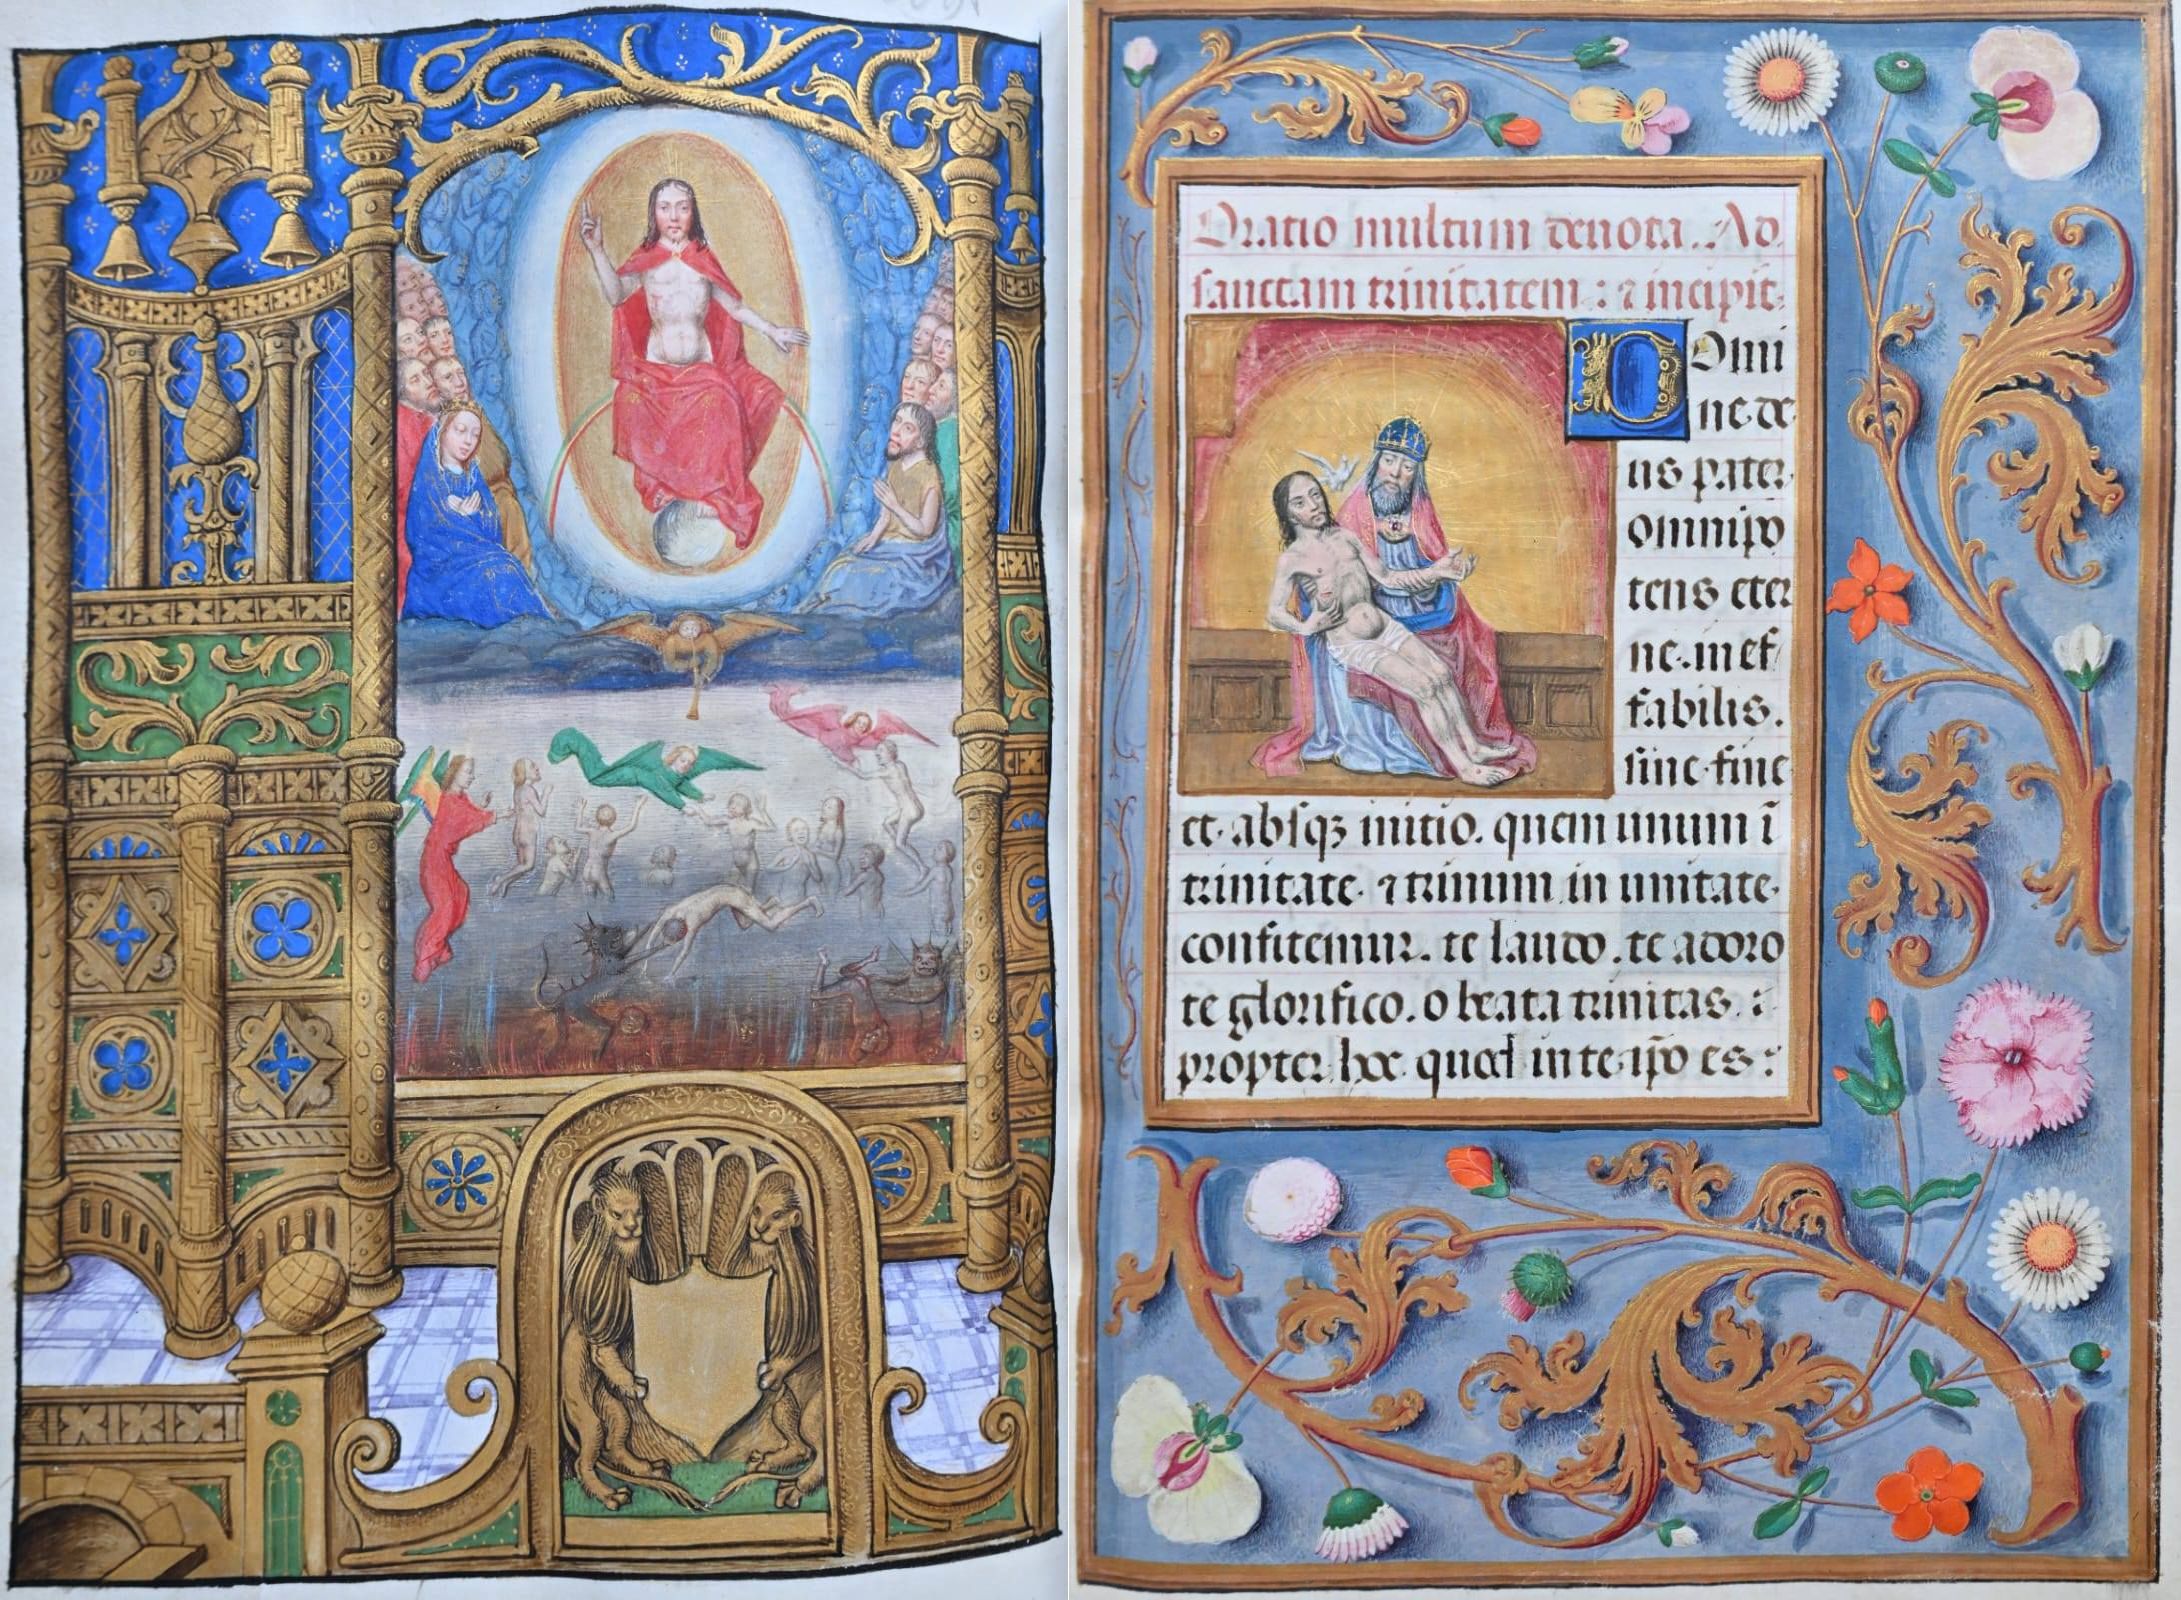 Oratio multum deuota. Ad
sanctam trinitatem: ⁊ incipit.
Domi
ne de
us pater
omnipo
tens eter
ne. inef
fabilis.
sine fine
et absqꝫ initio. quem unum ī
trinitate. ⁊ trinum in unitate
confitemur. te laudo. te adoro
te glorifico. o beata trinitas. ⁊
propter hoc quod in te ip̄o es: